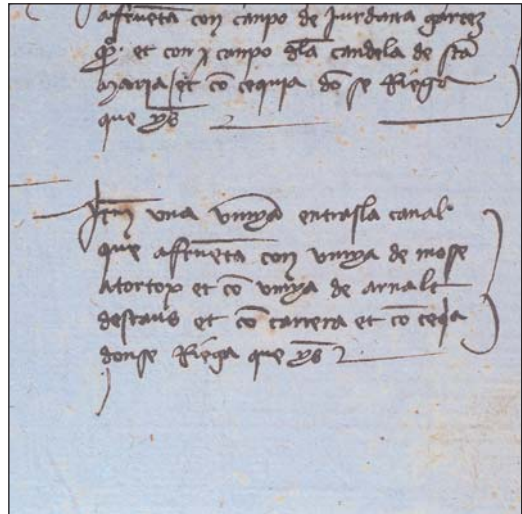 afruenta con canpo de jurdana garcez
et con j canpo dla candela de sta
maria et co cequia do se Riega
que
Item una vinya entrasla canal
que afruenta con vinya de mosse
atortox et co vinya de arnalt
destaus et co carrera et co ceqia
donse Riega que